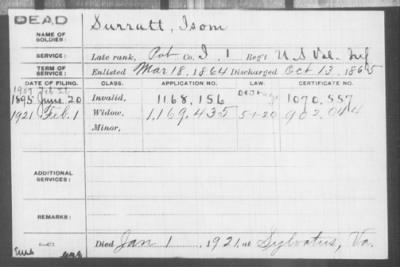 DEAD
NAME OF SOLDIER: Surratt, Isom
SERVICE: Late rank, Pvt Co. I, 1 Reg't U.S. Vol. Inf
TERM OF SERVICE: Enlisted Mar 18, 1864 Discharged Oct 13, 1865
DATE OF FILING. CLASS. APPLICATION NO. CERTIFICATE NO.
1907 Feb 21
1895 June 20 Invalid, 1168,156 1070,557
1921 Feb. 1 Widow, 1,169,435 5-1-20 902,044
Minor,
ADDITIONAL SERVICES:
REMARKS:
Died Jan 1 1921, at Sylvatus, Va.